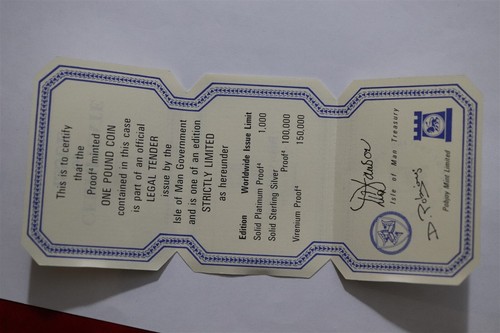 This is to certify
that the
Proof⁴ minted
ONE POUND COIN
contained in this case
is part of an official
LEGAL TENDER
issue by the
Isle of Man Government
and is one of an edition
STRICTLY LIMITED
as hereunder
Edition Worldwide Issue Limit
Solid Platinum Proof⁴ 1,000
Solid Sterling Silver Proof⁴ 100,000
Virenium Proof⁴ 150,000
Isle of Man Treasury
Pobjoy Mint Limited